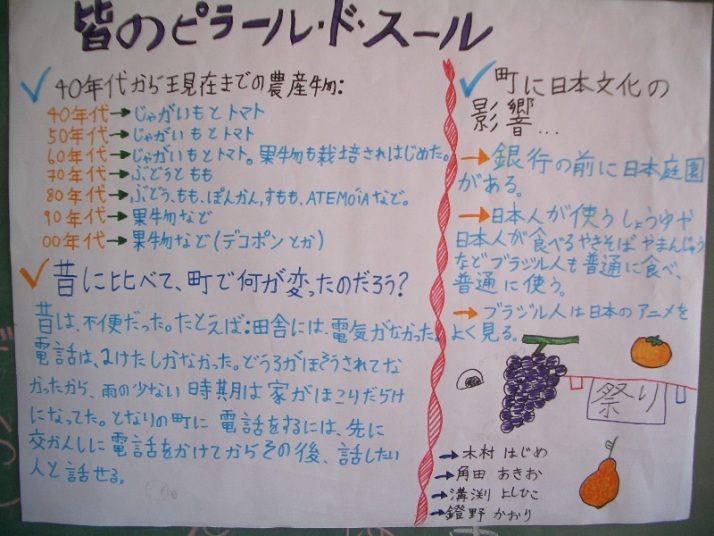 皆のピラール・ド・スール
✓40年代から現在までの農産物:
40年代→じゃがいもとトマト
50年代→じゃがいもとトマト
60年代→じゃがいもとトマト。果物も栽培されはじめた。
70年代→ぶどうともも
80年代→ぶどう、もも、ぽんかん、すもも、ATEMOIAなど。
90年代→果物など
00年代→果物など(デコポンとか)
✓昔に比べて、町で何が変ったのだろう?
昔は、不便だった。たとえば:田舎には、電気がなかった。
電話は、2けたしかなかった。どうろがほそうされてな
かったから、雨の少ない時期は家がほこりだらけ
になってた。となりの町に電話をするには、先に
交かんしに電話をかけてからその後、話したい
人と話せる。
✓町に日本文化の
影響...
→銀行の前に日本庭園
がある。
→日本人が使うしょうゆや
日本人が食べるやきそばやまんじゅう
などブラジル人も普通に食べ、
普通に使う。
→ブラジル人は日本のアニメを
よく見る。
祭り
→木村 はじめ
→角田 あきお
→溝渕 よしひこ
→鐙野 かおり